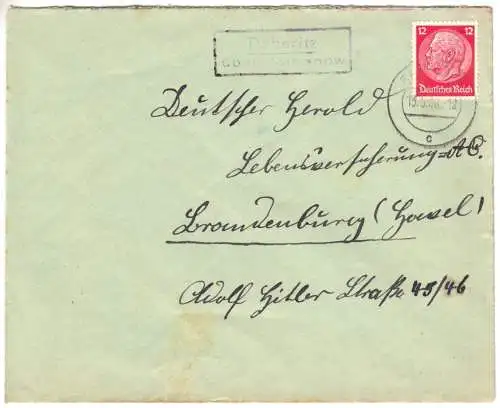 Döberitz
12 12
Deutsches Reich
c
Deutscher Herold
Lebensversicherung=AG.
Brandenburg (Havel)
Adolf Hitler Straße 45/46